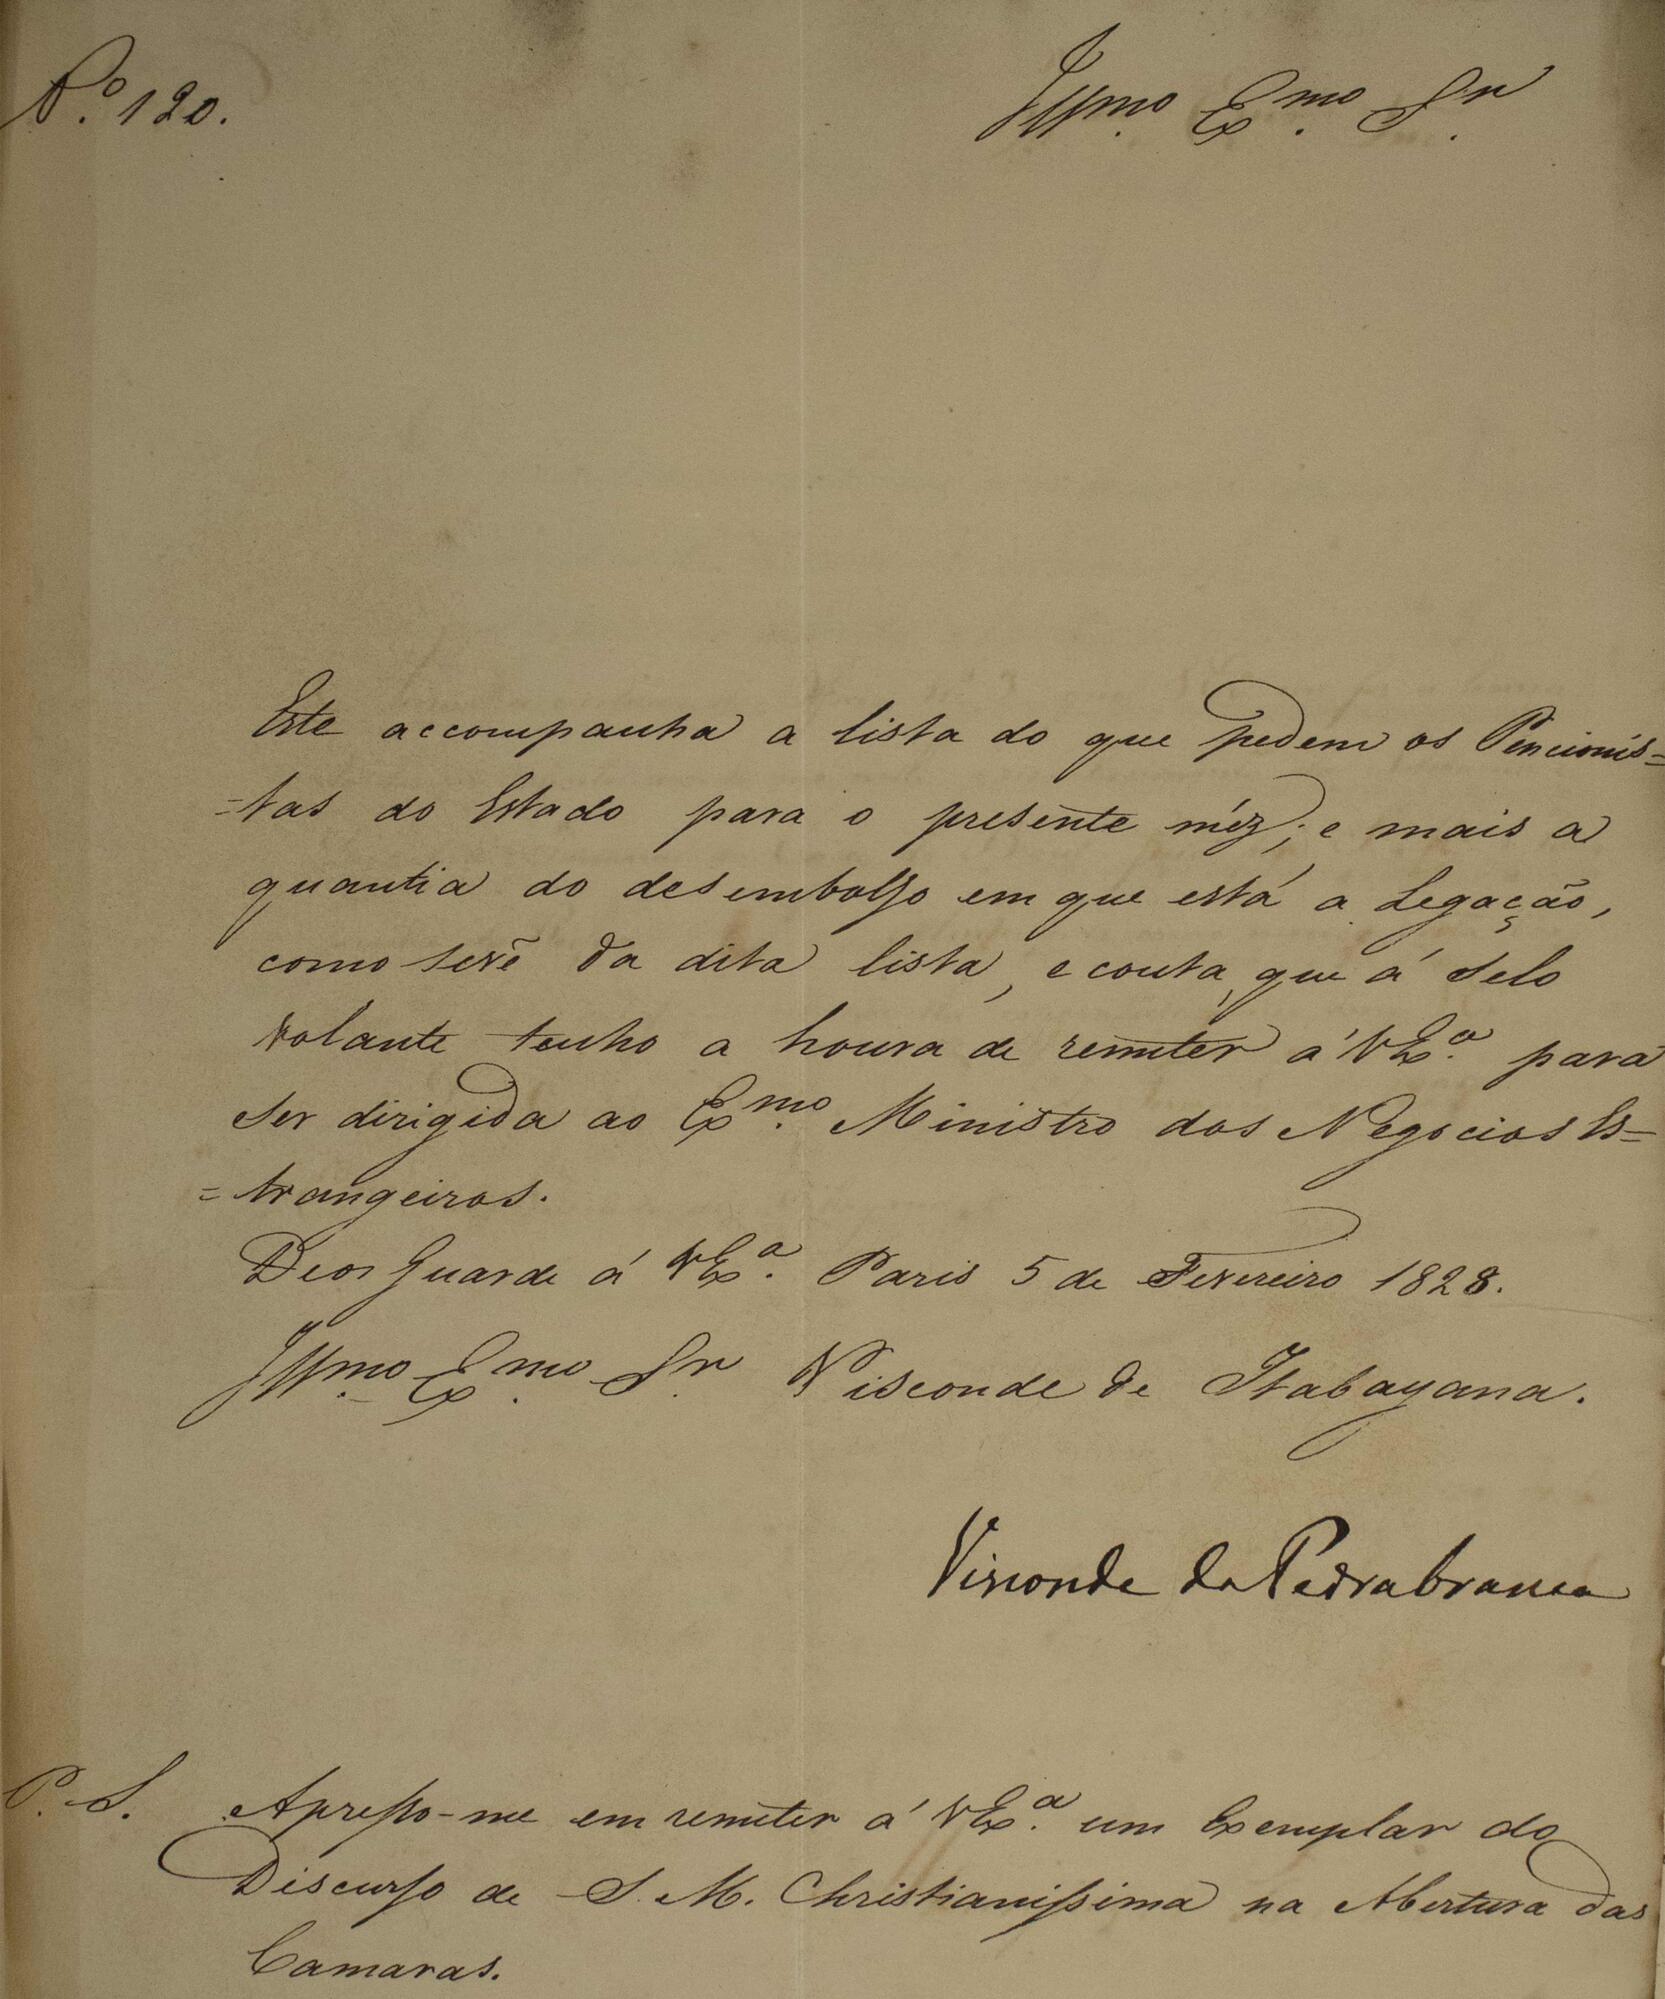 Nº. 120.
Illmo. Exmo. Sr.
Este accompanha a lista do que pedem os Pencionis=
=tas do Estado para o presente méz; e mais a
quantia do desembolso em que está a Legação,
como se vê da dita lista, e conta, que á selo
volante tenho a honra de remiter á VExª. para
ser dirigida ao Exmo. Ministro dos Negocios Es=
=trangeiros.
Deos Guarde á VExª. Paris 5 de Fevereiro 1828.
Illmo. Exmo. Sr. Visconde de Itabayana.
Visconde da Pedrabranca
P. S. Apresso-me em remiter á VExª. um Exemplar do
Discurso de S. M. Christianissima na Abertura das
Camaras.